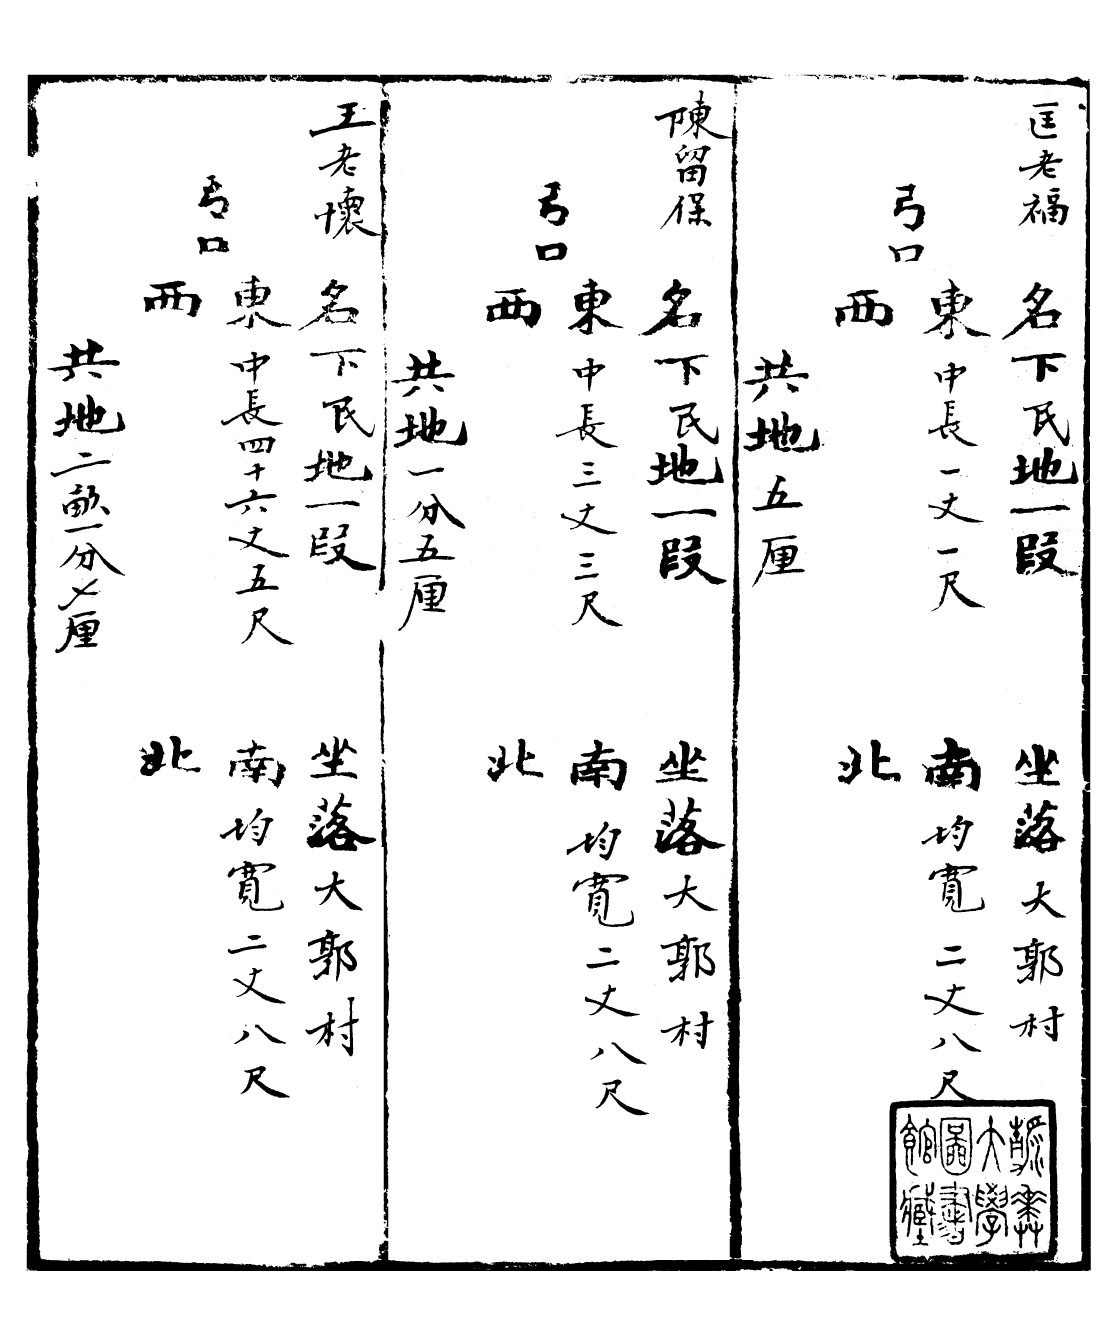 匡老福名下民地一段 坐落大郭村
弓口
東中長一丈一尺 南均寬二丈八尺
西 北
共地五厘
陳留保名下民地一段 坐落大郭村
弓口
東中長三丈三尺 南均寬二丈八尺
西 北
共地一分五厘
王老懷名下民地一段 坐落大郭村
弓口
東中長四十六丈五尺 南均寬二丈八尺
西 北
共地二畝一分七厘
大學
圖書
館藏